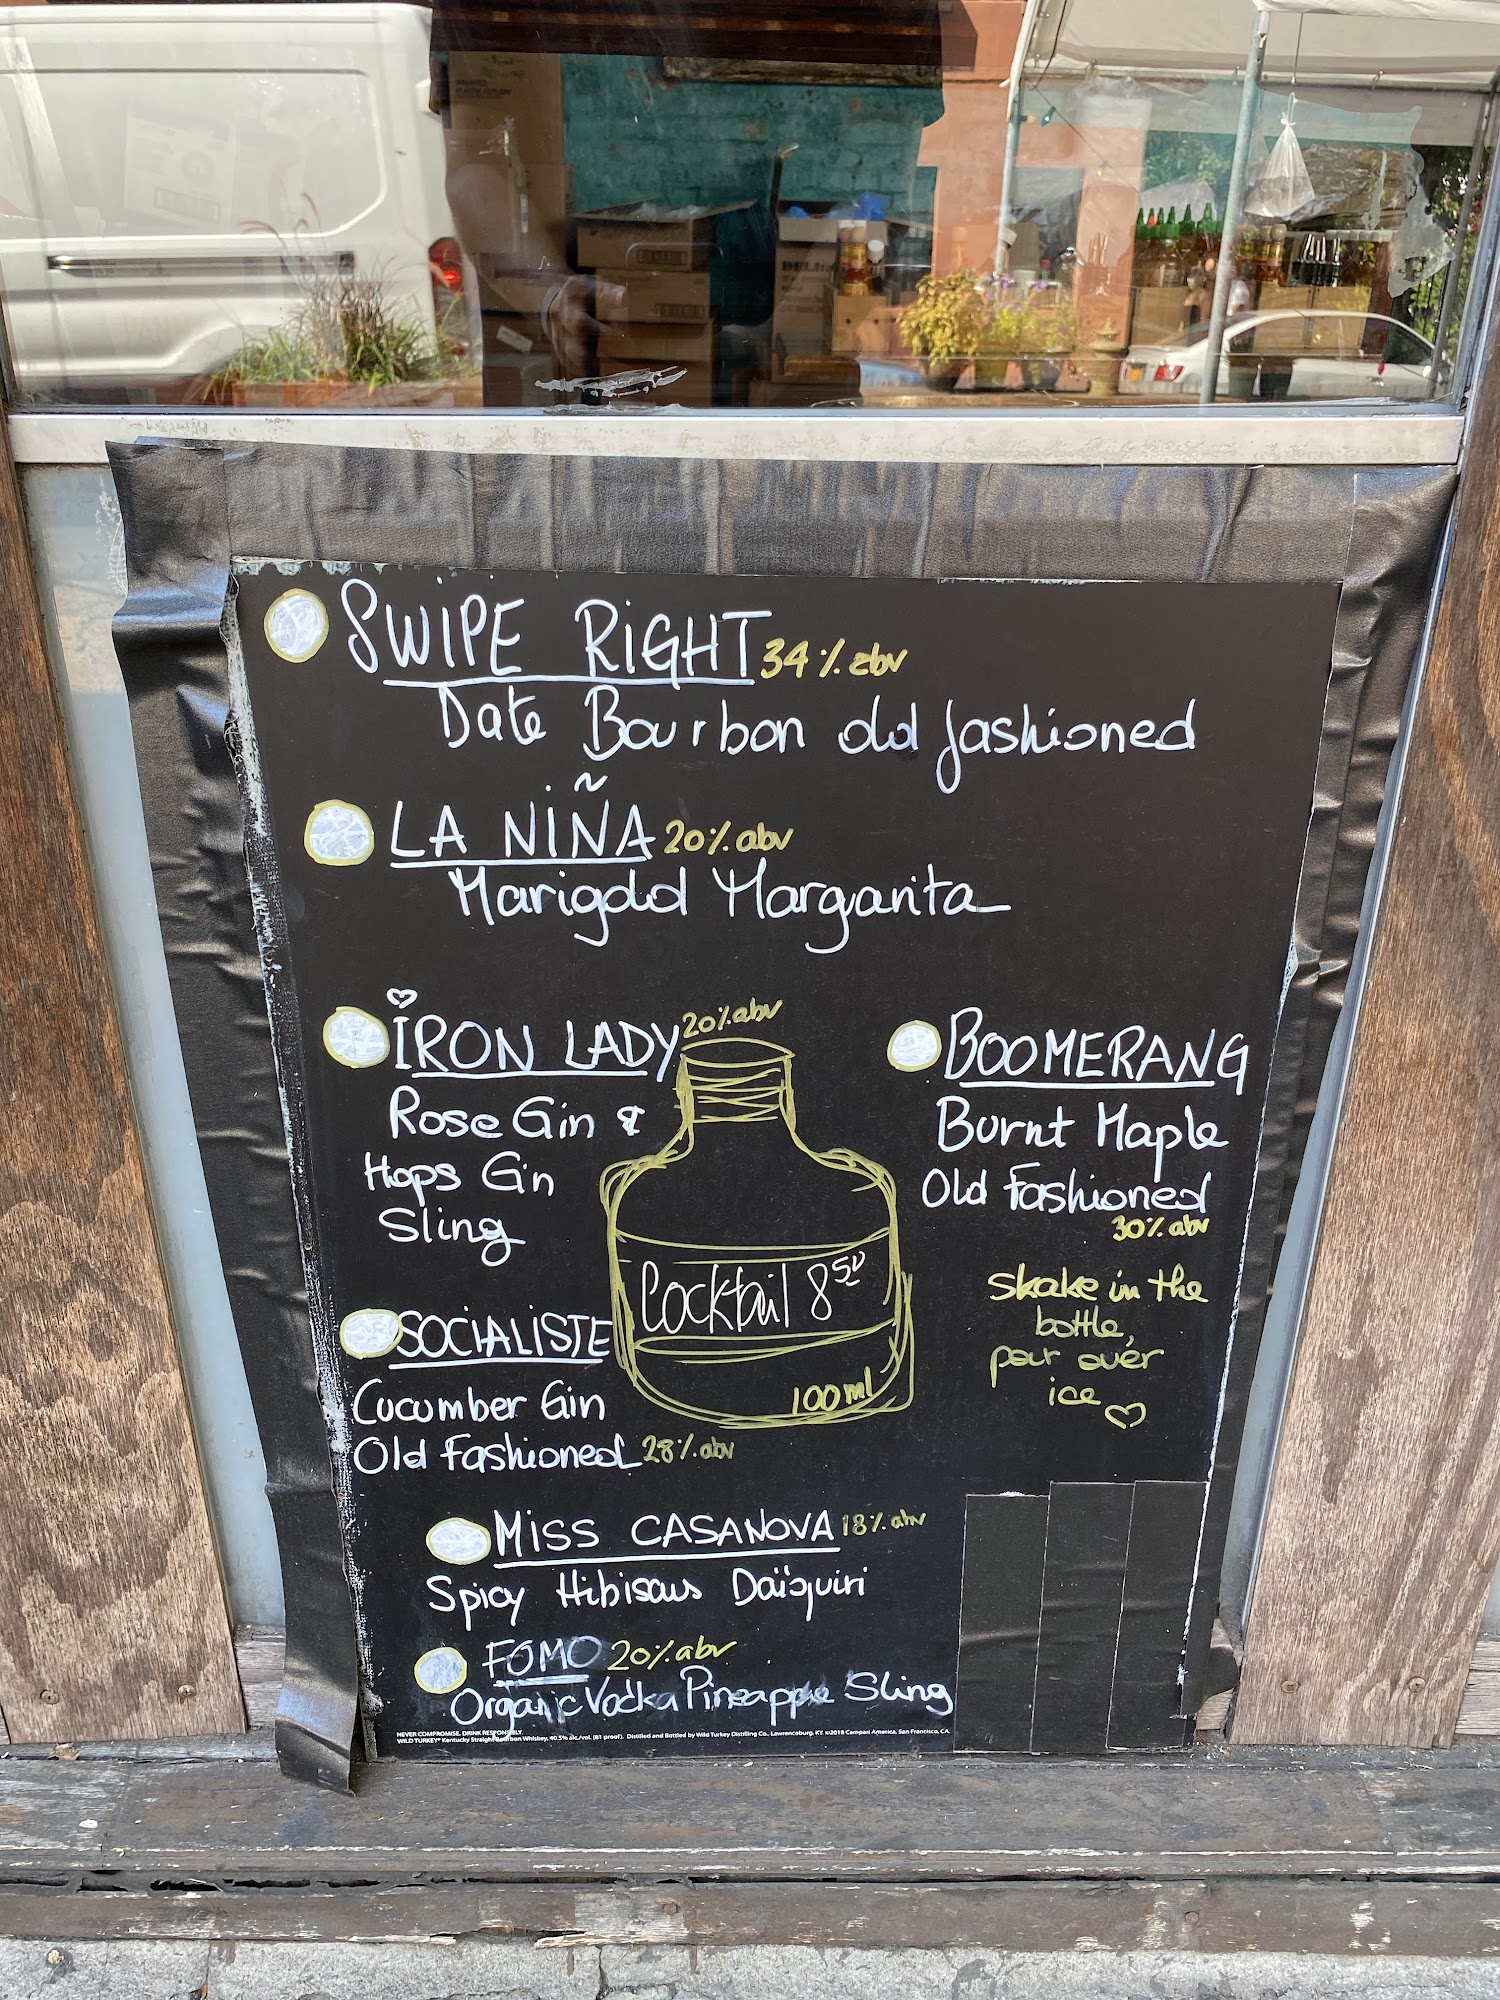 SWIPE RIGHT 34% abv
Date Bourbon old fashioned
LA NIÑA 20% abv
Marigold Margarita
IRON LADY 20% abv
Rose Gin &
Hops Gin
Sling
BOOMERANG
Burnt Maple
Old Fashioned
30% abv
shake in the
bottle,
pour over
ice
Cocktail 8⁵⁰
100ml
SOCIALISTE
Cucumber Gin
Old Fashioned 28% abv
MISS CASANOVA 18% abv
Spicy Hibiscus Daïquiri
FOMO 20% abv
Organic Vodka Pineapple Sling
NEVER COMPROMISE. DRINK RESPONSIBLY.
WILD TURKEY® Kentucky Straight Bourbon Whiskey, 40.5% alc./vol. (81 proof). Distilled and Bottled by Wild Turkey Distilling Co., Lawrenceburg, KY. ©2018 Campari America, San Francisco, CA.